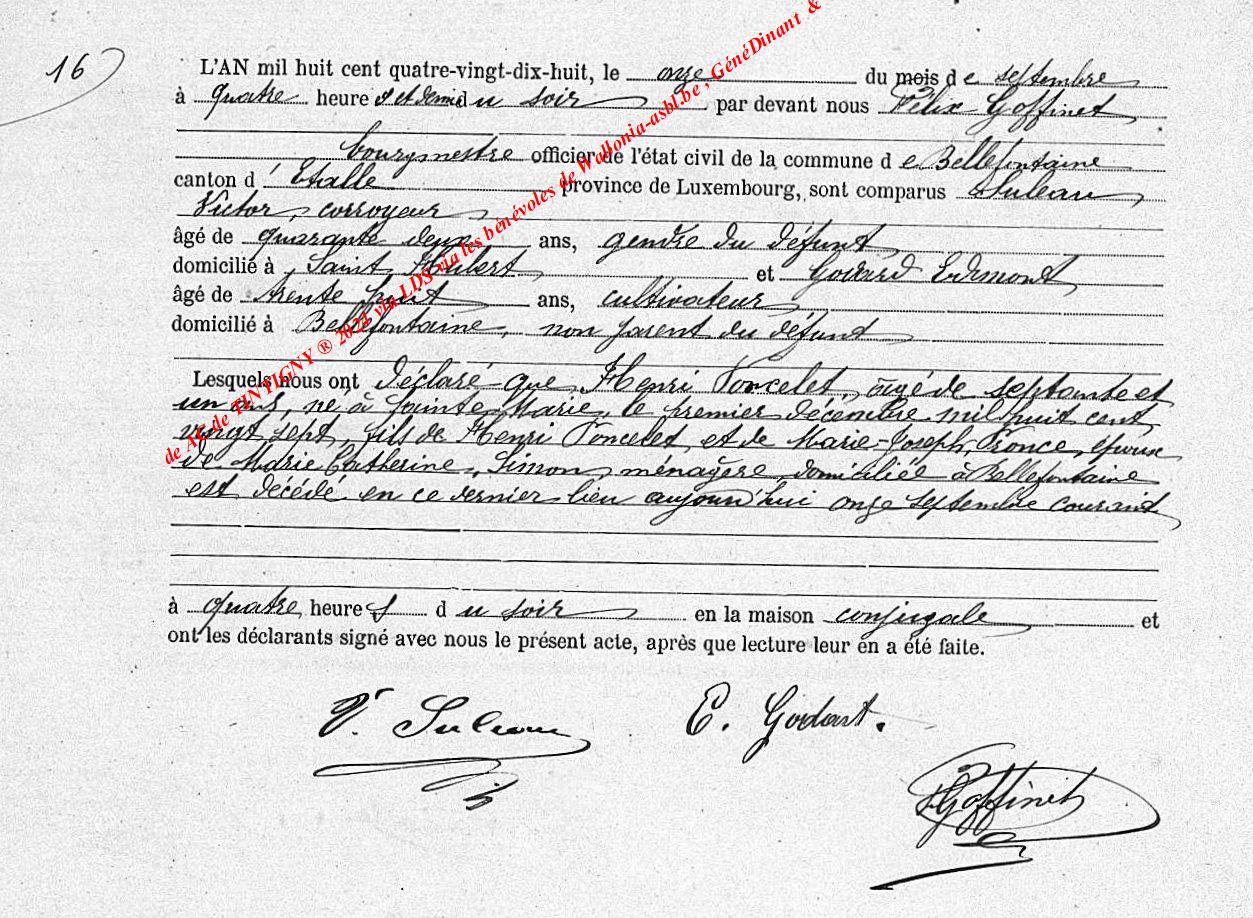 16
L'AN mil huit cent quatre-vingt-dix-huit, le onze du mois de septembre
à quatre heures et demi du soir par devant nous Félix Goffinet
bourgmestre officier de l'état civil de la commune de Bellefontaine
canton d'Etalle province de Luxembourg, sont comparus Suleau
Victor, corroyeur
âgé de quarante deux ans, gendre du défunt
domicilié à Saint Hubert et Godard Edmont
âgé de trente huit ans, cultivateur
domicilié à Bellefontaine, non parent du défunt
Lesquels nous ont déclaré que Henri Poncelet, âgé de septante et
un ans, né à Sainte-Marie, le premier décembre mil huit cent
vingt sept, fils de Henri Poncelet, et de Marie-Joseph, époux
de Marie Catherine Simon, ménagère, domiciliée à Bellefontaine
est décédé en ce dernier lieu aujourd'hui onze septembre courant
à quatre heures du soir en la maison conjugale et
ont les déclarants signé avec nous le présent acte, après que lecture leur en a été faite.
V. Suleau
E. Godart.
FGoffinet
de AC de TINTIGNY ® 2021 via LDS via les bénévoles de Wallonia-asbl.be, GénéDinant &